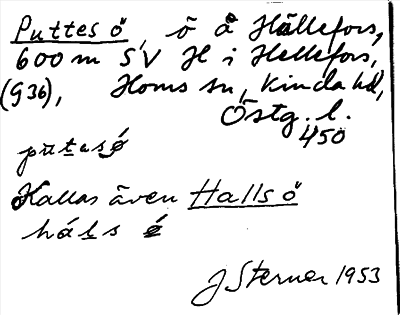 Puttes ö, ö å Hällefors,
600 m SV H i Hellefors,
(936), Horns sn, Kinda hd,
Östg. l.
450
pu̱tasé
Kallas även Halls ö
háḻs é
J Sterner 1953